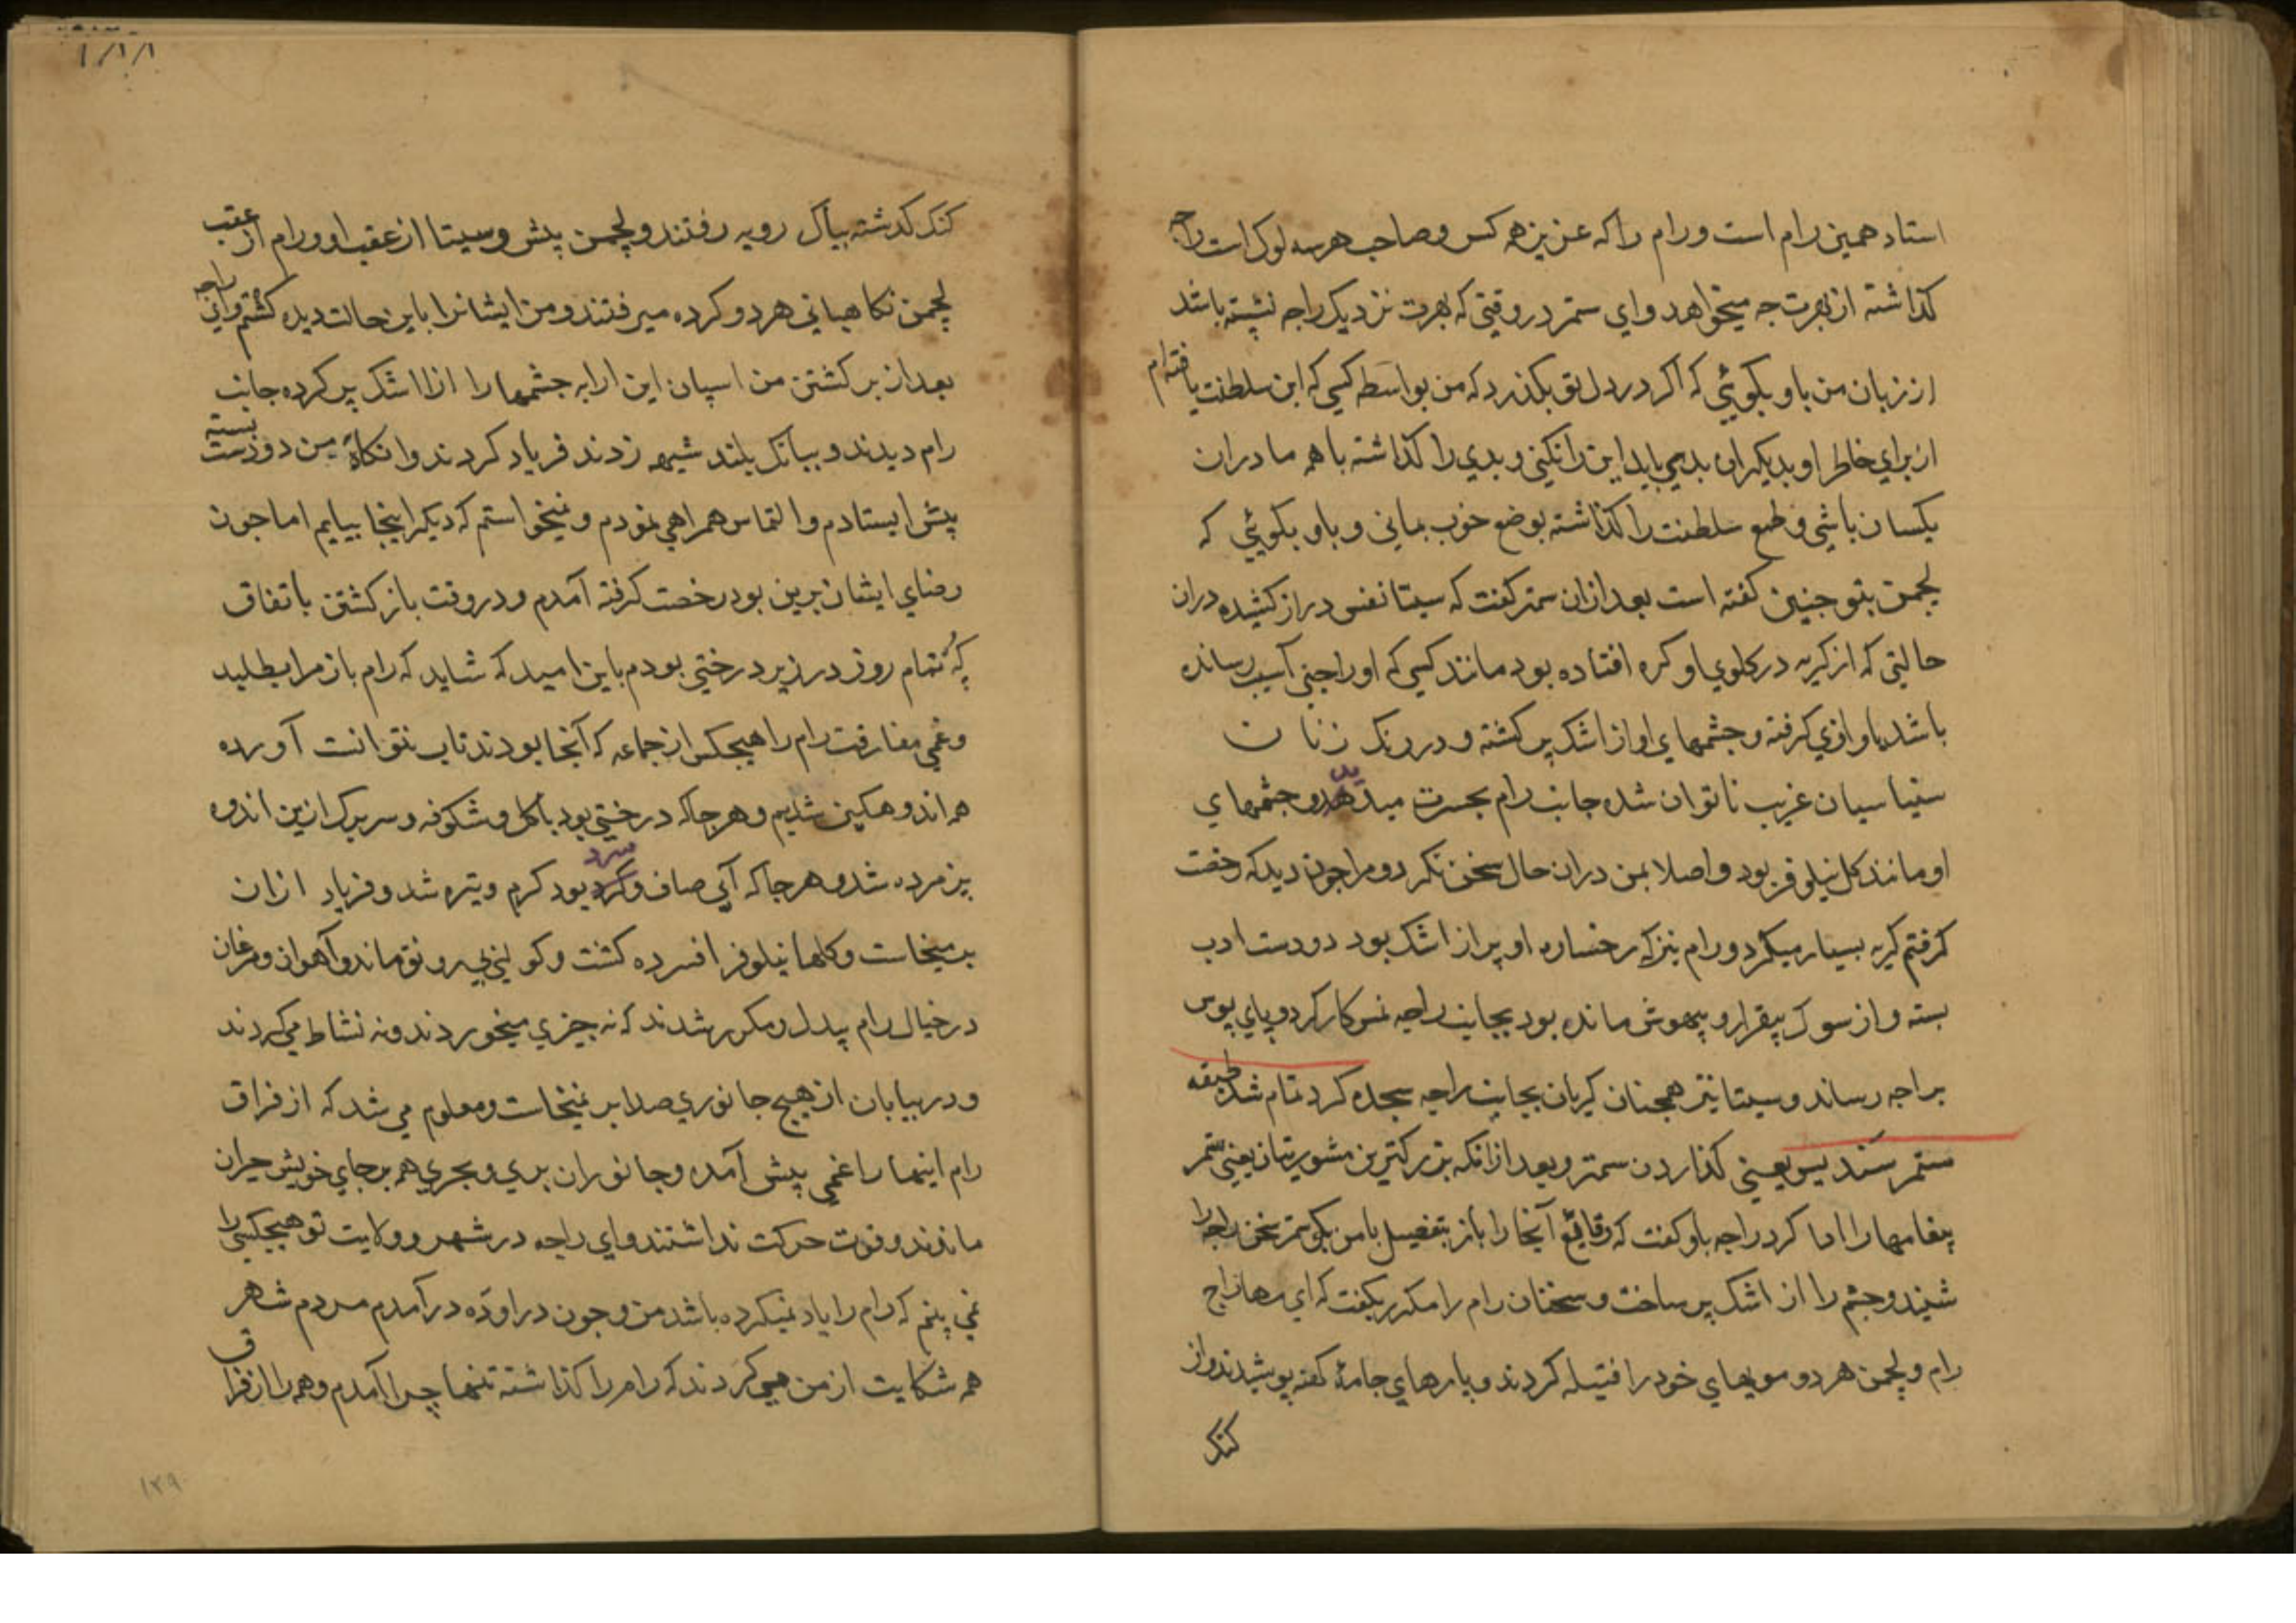 استاد همین رام است و رام را که عزیز همه کس و صاحب هر سه لوک است راجه
کذاشته از بهرت جه میخواهد و ای ستمر در وقتی که بهرت نزدیک راجه نشسته باشد
از زبان من باو بکوئی که اکر در دل تو بکذرد که من بواسطه کسی که این سلطنت یافته ام
از برای خاطر او بدیکران بدی باید این را نکنی و بدی را کذاشته با همه مادران
یکسان باشی و طمع سلطنت را کذاشته بوضع خوب بمانی و باو بکوئی که
لچمن بتو جنین کفته است بعد ازان سمتر کفت که سیتا نفس دراز کشیده دران
حالتی که از کریه در کلوی او کره افتاده بود مانند کسی که او را جنی آسیب رسانده
باشد باوازی کرفته و جشمهای او از اشک پر کشته و در رنک زنان
سنیاسیان غریب ناتوان شده جانب رام بحسرت میدید و جشمهای
او مانند کل نیلوفر بود و اصلا بمن دران حال سخن نکرد و مرا جون دید که رخصت
کرفتم کریه بسیار میکرد و رام نیز که رخساره او پر از اشک بود دو دست ادب
بسته و از سوک بیقرار و بیهوش مانده بود بجانب راجه نمسکار کرد و پای بوس
براجه رساند و سیتا نیز همجنان کریان بجانب راجه سجده کرد تمام شد طبقه
ستمر سندیس یعنی کذاردن سمتر و بعد ازانکه بزرکترین مشوریتان یعنی ستمر
پیغامها را ادا کرد راجه باو کفت که وقایع آنجا را باز بتفصیل با من بکو ستمر سخن راجه را
شنید و جشم را از اشک پر ساخت و سخنان رام را مکرر بکفت که ای مهاراج
رام و لچمن هر دو مویهای خود را فتیله کردند و پارهای جامهٔ کهنه پوشیدند و از
کنک
۱/۱/۱
کنک کذشته بیاک رویه رفتند و لچمن پیش و سیتا از عقب او و رام از عقب
لچمن نکاهبانی هر دو کرده میرفتند و من ایشانرا باین حالت دیده کشتم و ای راجه
بعد از برکشتن من اسپان این ارابه جشمها را از اشک پر کرده جانب
رام دیدند و ببانک بلند شیهه زدند فریاد کردند و انکاه من دو دست بسته
پیش ایستادم و التماس همراهی نمودم و نمیخواستم که دیکر اینجا بیایم اما جون
رضای ایشان برین بود رخصت کرفته آمدم و در وقت باز کشتن باتفاق
کُه تمام روز در زیر درختی بودم باین امید که شاید که رام باز مرا بطلبد
و غمی مفارقت رام را هیجکس از جماعه که آنجا بودند تاب نتوانست آورده
همه اندوهکین شدیم و هر جا که درختی بود با کل و شکوفه و سر برک ازین اندوه
پزمرده شد و هر جا که آبی صاف و سرد بود کرم و تیره شد و فریاد ازان
بر میخاست و کلها نیلوفر افسرده کشت و کو لنی بی رونق ماند و آهوان و مرغان
در خیال رام بیدل و مکرر شدند که نه جیزی میخوردند و نه نشاط می کردند
و در بیابان از هیچ جانوری صدا بر نمیخاست و معلوم می شد که از فراق
رام اینها را غمی پیش آمده و جانوران بری و بحری هم برجای خویش حیران
ماندند و قوت حرکت نداشتند و ای راجه در شهر و ولایت تو هیچکس را
نمی بینم که رام را یاد نمیکرده باشد من و جون در اوده درآمدم مردم شهر
همه شکایت از من می کردند که رام را کذاشته تنها چرا آمدم و همه را از فراق
۱۳۹